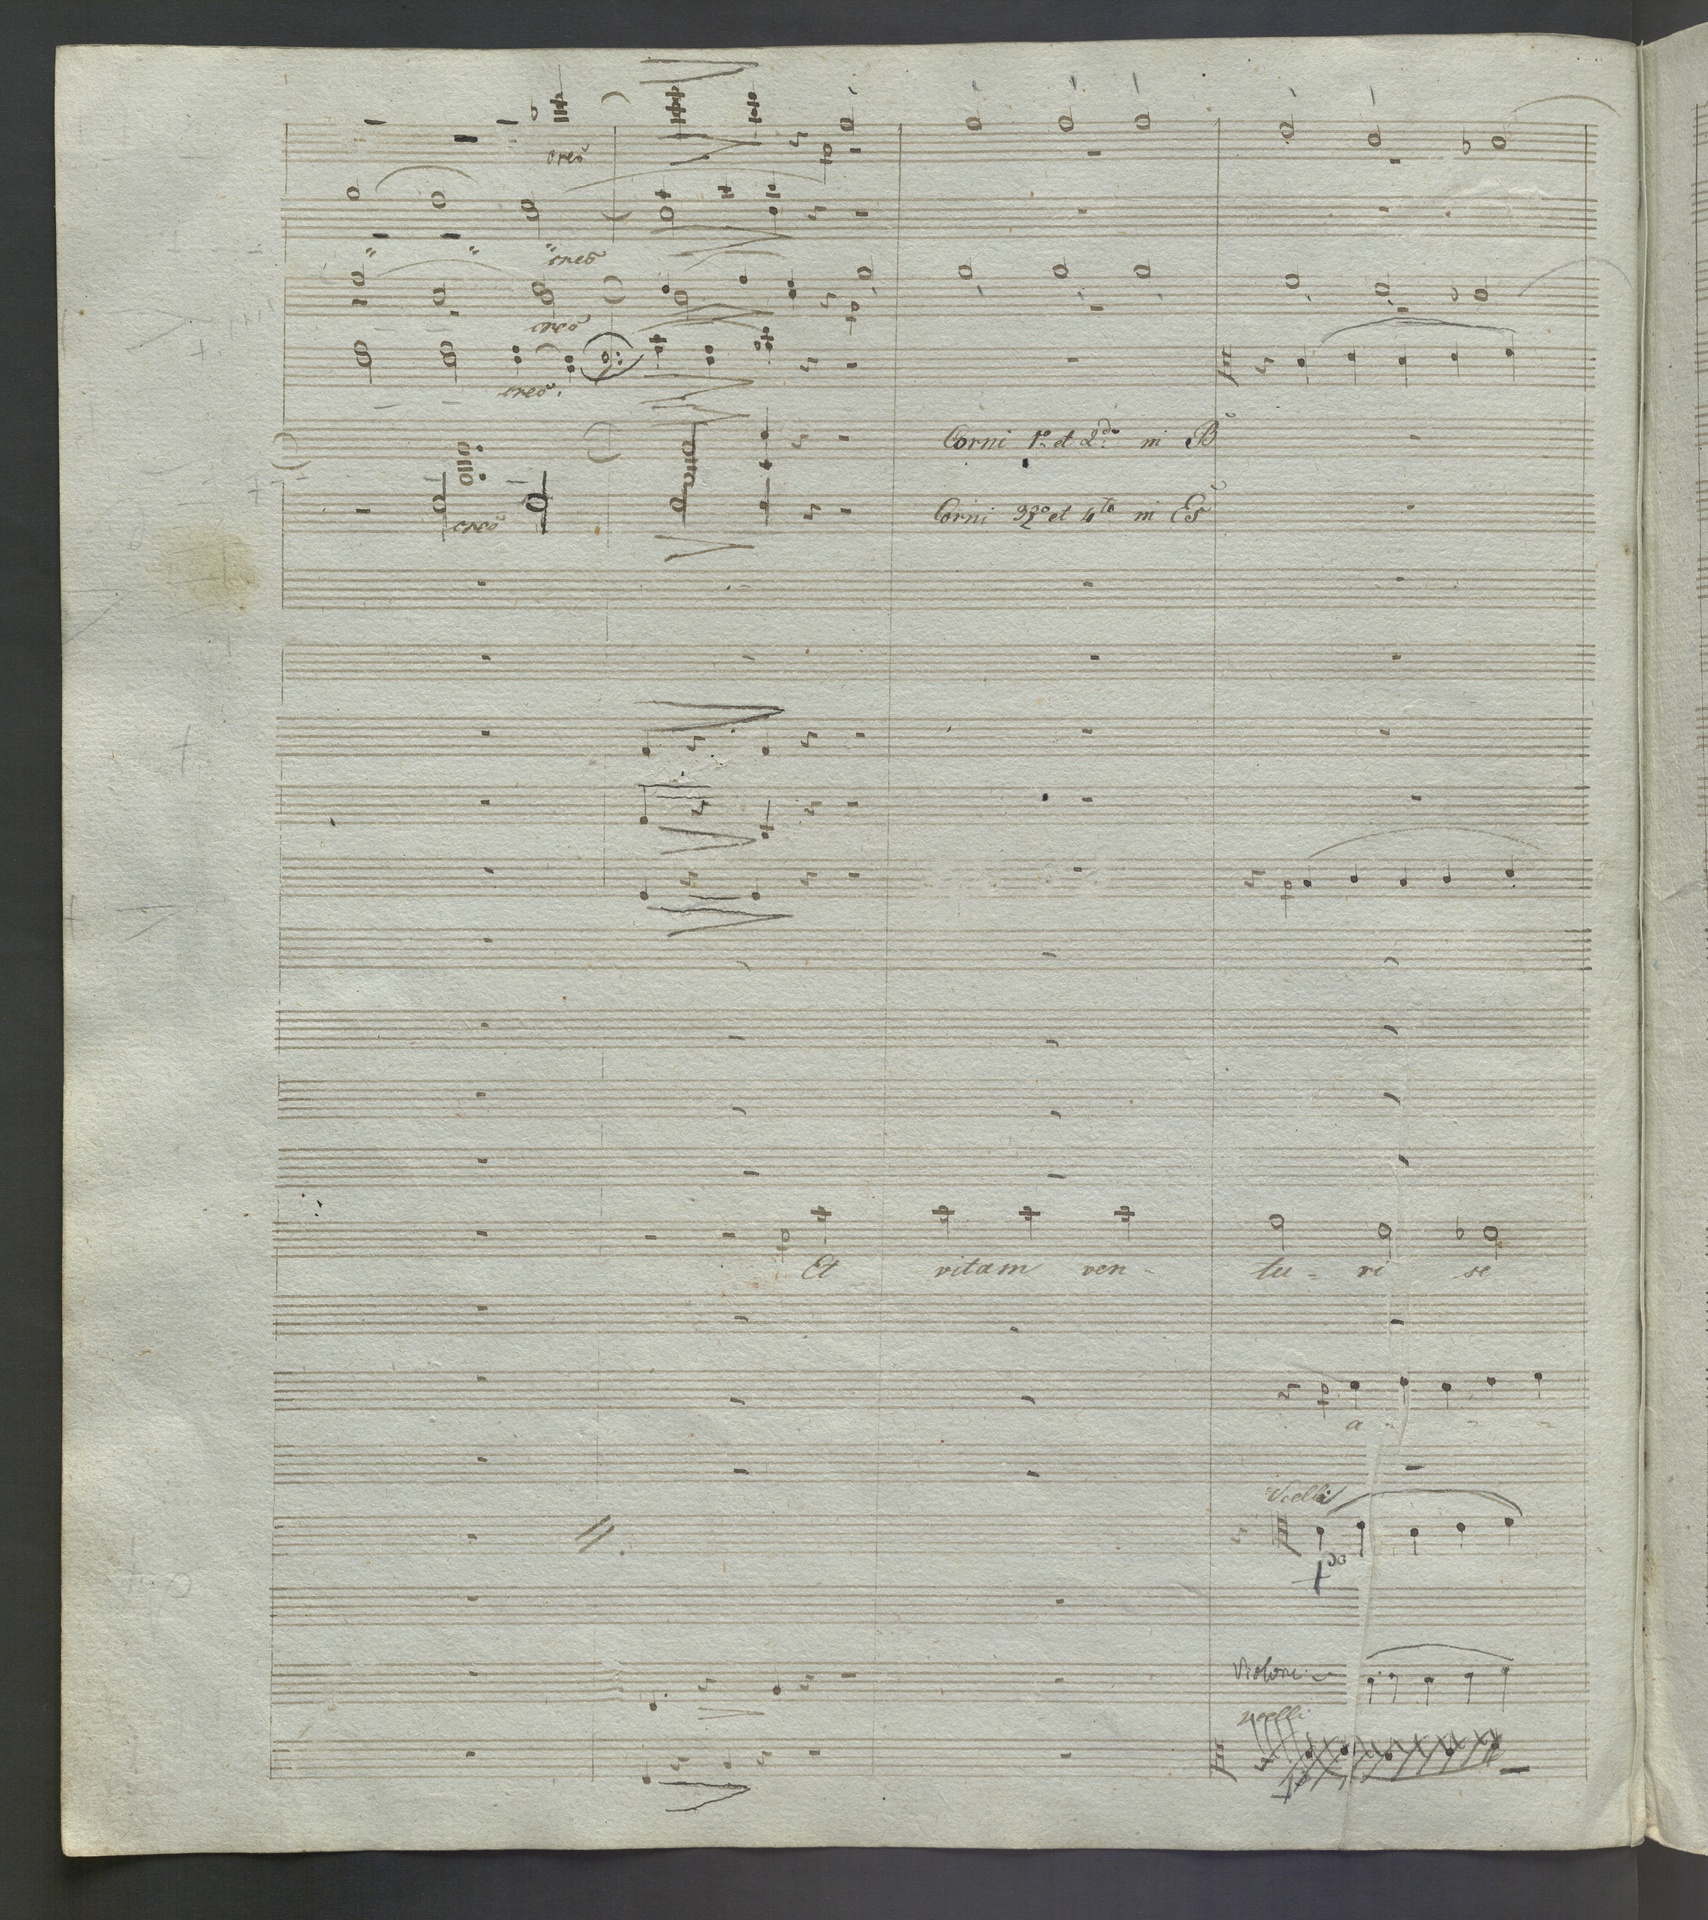 cresc
cresc
cresc
cresc.
Corni 1º et 2do in B
cresc
Corni 3zo et 4to in Es
p
p
p
p
Et vitam ven - tu - ri se
p
a - - -
Vcelli
po
Violone
Vcelli